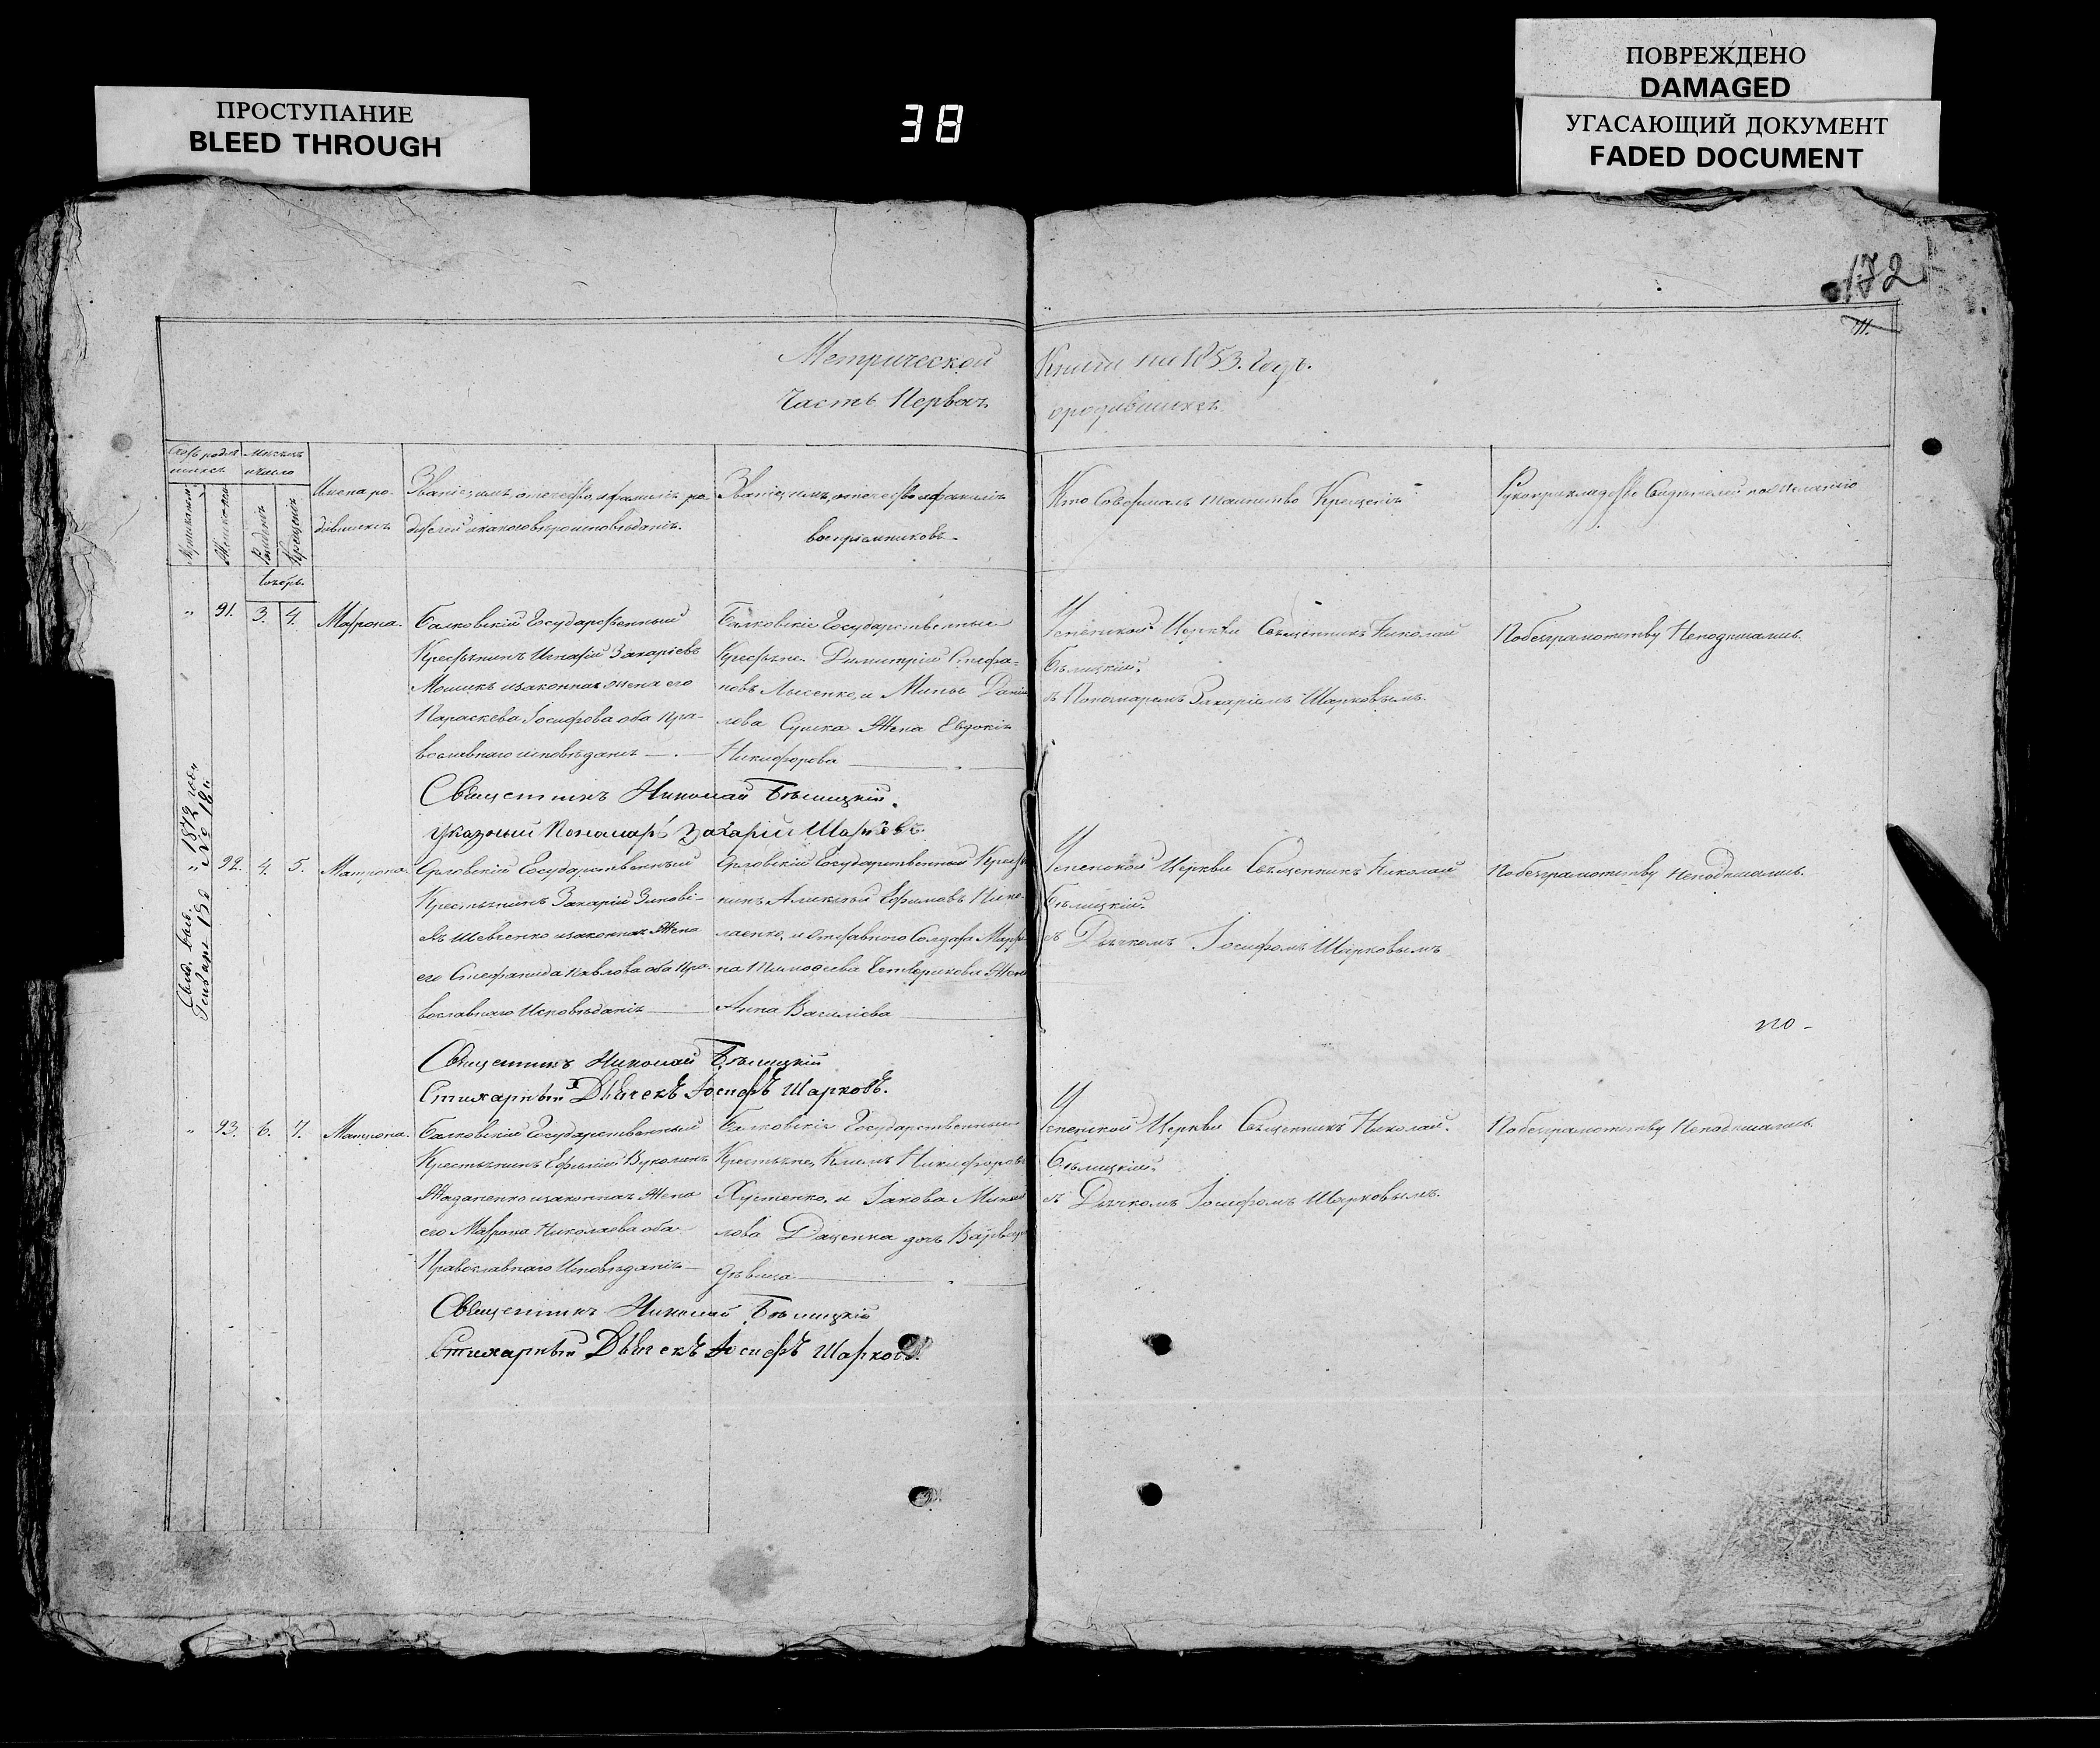 ПРОСТУПАНИЕ
BLEED THROUGH
38
ПОВРЕЖДЕНО
DAMAGED
УГАСАЮЩИЙ ДОКУМЕНТ
FADED DOCUMENT
172
Метрической Книги на 1853. Годъ.
Часть Первая. о родившихся
Мѣсяцъ
и число
Рожденія
Крещенія
Имена ро-
дившихся
Званіе, имя, отчество, и фамилія ро-
дителей и какого вѣроисповѣданія.
Званіе, имя, отчество и фамилія
воспріемниковъ.
Кто Совершалъ таинство Крещенія
Рукоприкладство Свидѣтелей по желанію
" 91. 3. 4. Матрона.
Балковскій Государственный
Крестьянинъ Игнатій Захаріевъ
Мошикъ и законная жена его
Параскева Іосифова оба пра-
вославнаго исповѣданія
Балковскіе Государственные
Крестьяне. Димитрій Стефа-
новъ Лысенко, и Мины Даніи
лова Сушка Жена Евдокія
Никифорова
Успенской Церкви Священникъ Николай
Бѣлицкій.
съ Пономаремъ Захаріемъ Шарковымъ.
По безграмотству Неподписались.
Священникъ Николай Бѣлицкій.
Указный Пономарь Захарій Шарковъ.
" 92. 4. 5. Матрона.
Орловскій Государственный
Крестьянинъ Захарій Зинові-
евъ Шевченко и законная Жена
его Стефанида Павлова оба пра-
вославнаго Исповѣданія
Орловскій Государственный Крестья
нинъ Алексѣй Ефимовъ Нико-
лаенко, и отставного Солдата Марты
на Тимофѣева Четверикова Жена
Анна Василіева
Успенской Церкви Священникъ Николай
Бѣлицкій.
съ Дьячкомъ Іосифомъ Шарковымъ
По безграмотству Неподписались.
Священникъ Николай Бѣлицкій
Стихарный Дьячекъ Іосифъ Шарковъ.
" 93. 6. 7. Матрона.
Балковскій Государственный
Жаданенко и законная Жена
его Матрона Николаева оба
Православнаго Исповѣданія
Балковскіе Государственные
Крестьяне, Климъ Никифоровъ
Хустенко, и Іакова Михаи
лова Даценка дочь Варвара
дѣвица
Успенской Церкви Священникъ Николай.
Бѣлицкій.
съ Дьячкомъ Іосифомъ Шарковымъ.
По безграмотству Неподписались.
Священникъ Николай Бѣлицкій
Стихарный Дьячекъ Іосифъ Шарковъ.
Свид. выд. 1872 года
Генваря 19 д № 18
по-